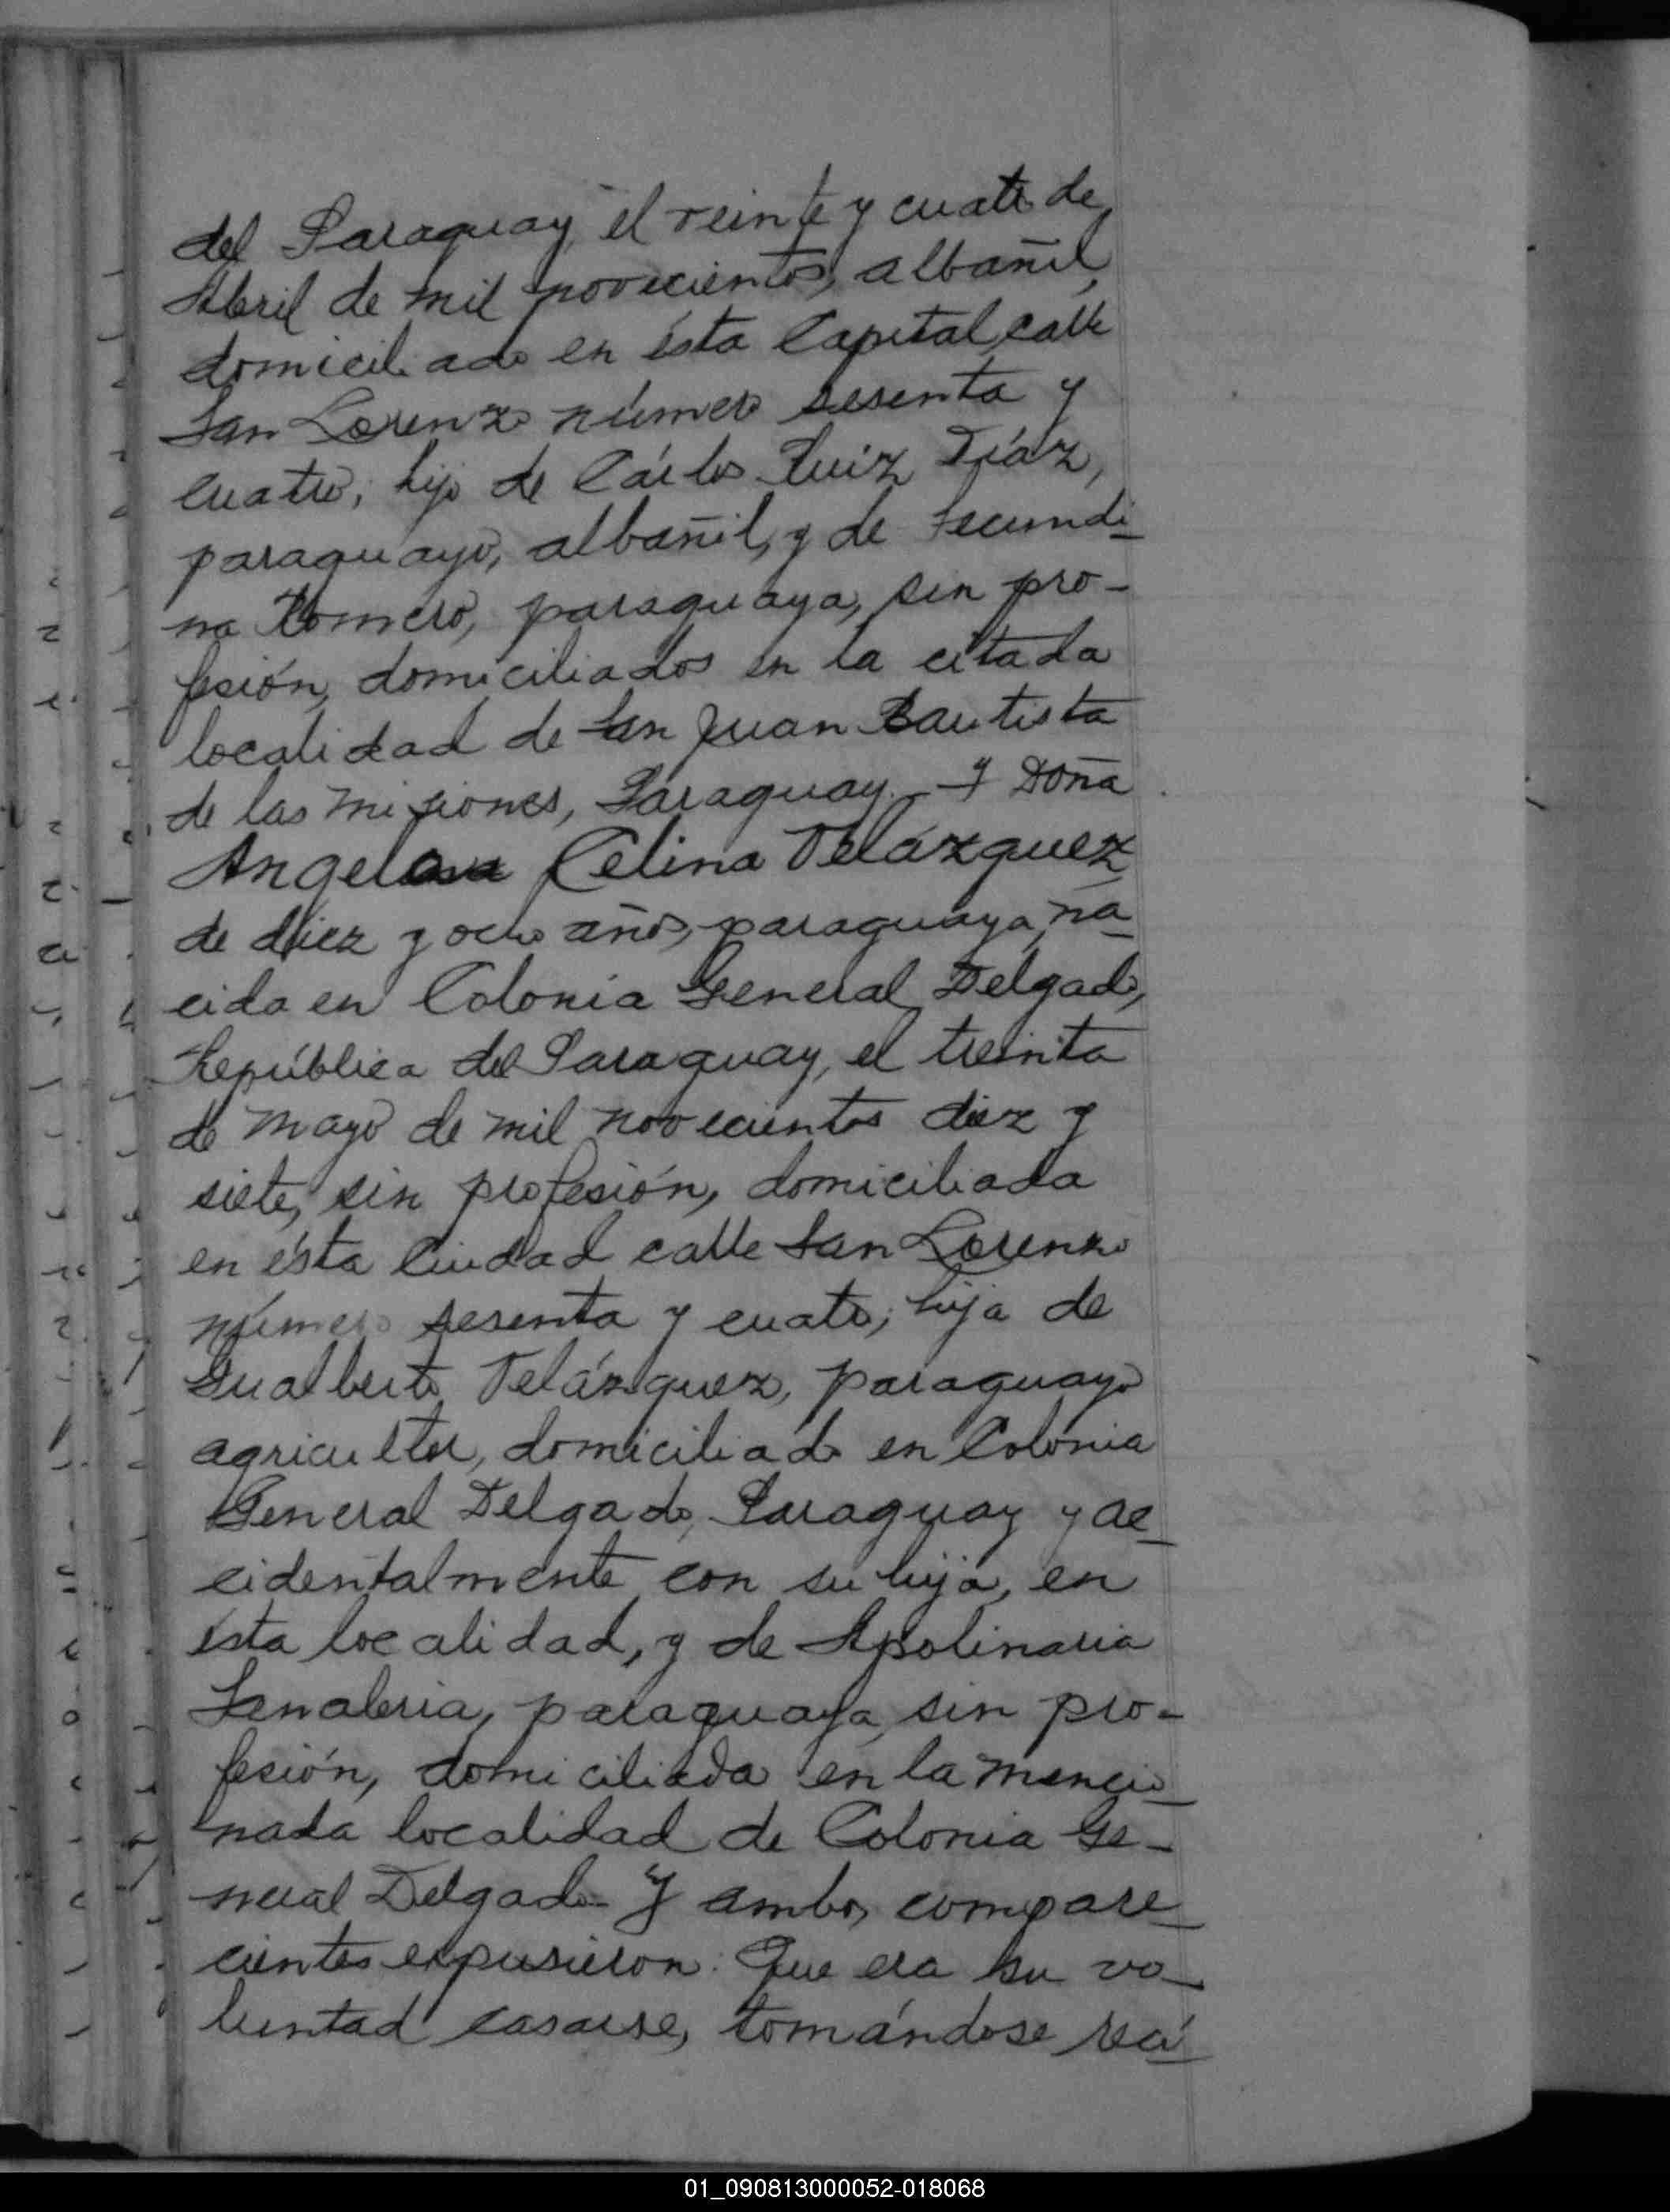 del Paraguay, el veinte y cuatro de
Abril de mil novecientos, albañil,
domiciliado en ésta Capital, calle
San Lorenzo número sesenta y
cuatro; hijo de Cárlos Ruiz Díaz,
paraguayo, albañil, y de Secundi-
na Romero, paraguaya, sin pro-
fesión, domiciliados en la citada
localidad de San Juan Bautista
de las Misiones, Paraguay. Y Doña
Angela Celina Velázquez
de diez y ocho años, paraguaya, na-
cida en Colonia General Delgado,
República del Paraguay, el treinta
de Mayo de mil novecientos diez y
siete, sin profesión, domiciliada
en ésta Ciudad calle San Lorenzo
número sesenta y cuatro; hija de
Gualberto Velázquez, paraguayo
agricultor, domiciliado en Colonia
General Delgado, Paraguay y ac-
cidentalmente con su hija, en
ésta localidad, y de Apolinaria
Senabria, paraguaya, sin pro-
fesión, domiciliada en la mencio-
nada localidad de Colonia Ge-
neral Delgado. Y ambos compare-
cientes expusieron: Que era su vo-
luntad casarse, tomándose recí-
01_090813000052-018068